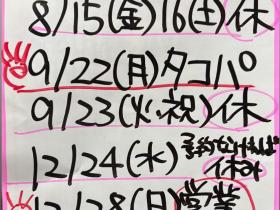 8/15(金)16(土)休
9/22(月)タコパ
9/23(火・祝)休
12/24(水)予約なければ休み
12/28(日)営業